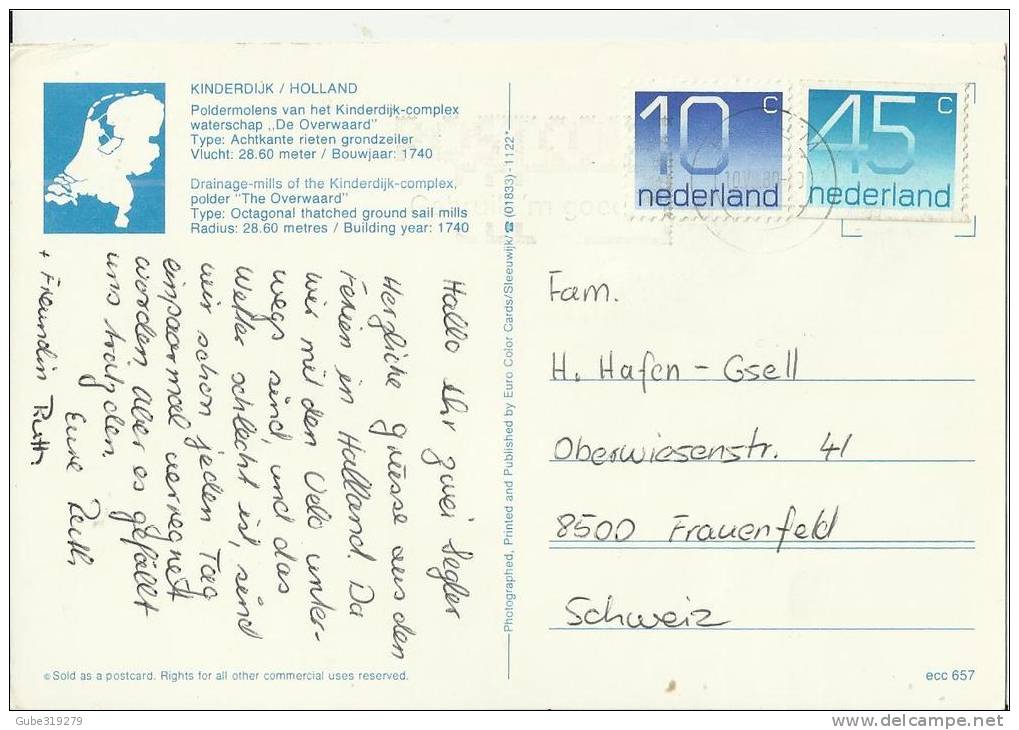 KINDERDIJK / HOLLAND
Poldermolens van het Kinderdijk-complex
waterschap ,,De Overwaard"
Type: Achtkante rieten grondzeiler
Vlucht: 28.60 meter / Bouwjaar: 1740
Drainage-mills of the Kinderdijk-complex,
polder "The Overwaard"
Type: Octagonal thatched ground sail mills
Radius: 28.60 metres / Building year: 1740
Hallo Ihr zwei Segler
Herzliche Grüsse aus den
Ferien in Holland. Da
wir mit den Velo unter-
wegs sind, und das
Wetter schlecht ist, sind
wir schon jeden Tag
einpaarmal verregnet
worden. Aber es gefällt
uns trotzdem.
Eure Ruth
+ Freundin Ruth.
Photographed, Printed and Published by Euro Color Cards/Sleeuwijk/☎ (01833)-1122*
10 c
nederland
45 c
nederland
Fam.
H. Hafen - Gsell
Oberwiesenstr. 41
8500 Frauenfeld
Schweiz
© Sold as a postcard. Rights for all other commercial uses reserved.
ecc 657
Gube319279
www.delcampe.net